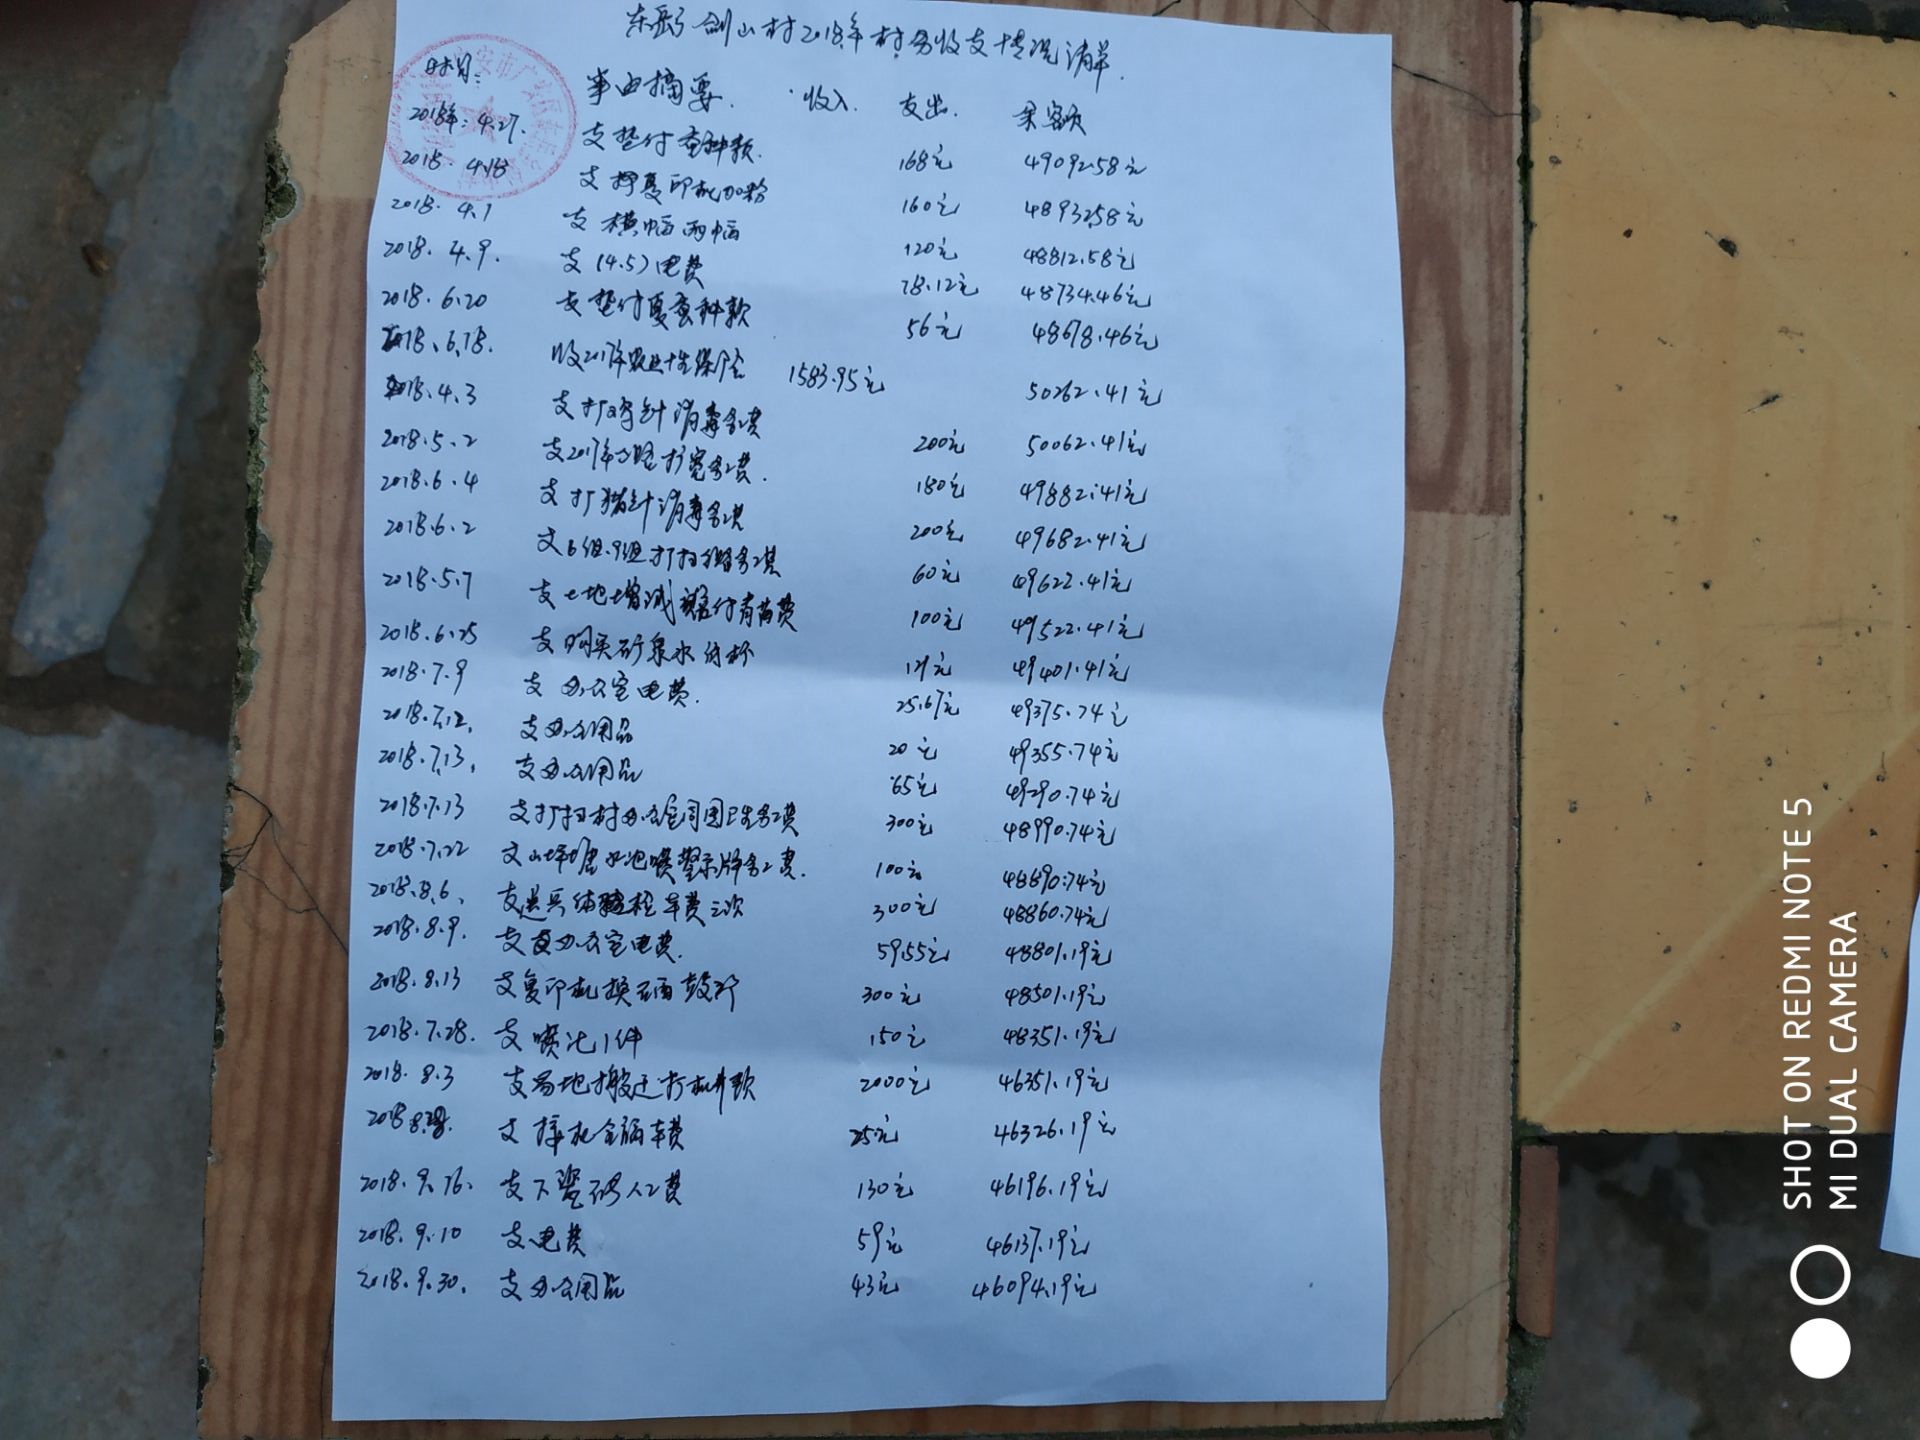 剑山村2018年村务收支情况清单
时间: 事由摘要 收入 支出 余额
2018年:4.27. 支垫付蚕种款 168元 49092.58元
2018 4.18 支 复印机加粉 160元 48932.58元
2018. 4.1 支 横幅两幅 120元 48812.58元
2018. 4.9. 支(4.5)电费 78.12元 48734.46元
2018.6.20 支垫付夏蚕种款 56元 48678.46元
2018.6.18. 收2017年农业 保险 1583.95元 50262.41元
2018.4.3 支打鸡针消毒务工费 200元 50062.41元
2018.5.2 支2017年公路扩宽务工费. 180元 49882.41元
2018.6.4 支打猪针消毒务工费 200元 49682.41元
2018.6.2 支6组.9组打扫 务工费 60元 49622.41元
2018.5.7 支土地增减 付青苗费 100元 49522.41元
2018.6.25 支购买矿泉水 杯 121元 49401.41元
2018.7.9 支办公室电费. 25.67元 49375.74元
2018.7.12. 支办公用品 20元 49355.74元
2018.7.13. 支办公用品 65元 49290.74元
2018.7.13 支打扫村办公室周围卫生务工费 300元 48990.74元
2018.7.22 支山坪塘水池喷警示牌务工费. 100元 48890.74元
2018.8.6. 支送兵体检车费三次 300元 48860.74元
2018.8.9. 支 办公室电费. 59.55元 48801.19元
2018.8.13 支复印机换 硒鼓 300元 48501.19元
2018.7.28. 支喷 1件 150元 48351.19元
2018.8.3 支易地搬迁打机井款 2000元 46351.19元
支 车费 25元 46326.19元
2018.9.16. 支下瓷砖人工费 130元 46196.19元
2018.9.10 支电费 59元 46137.19元
2018.9.30. 支办公用品 43元 46094.19元
SHOT ON REDMI NOTE 5
MI DUAL CAMERA